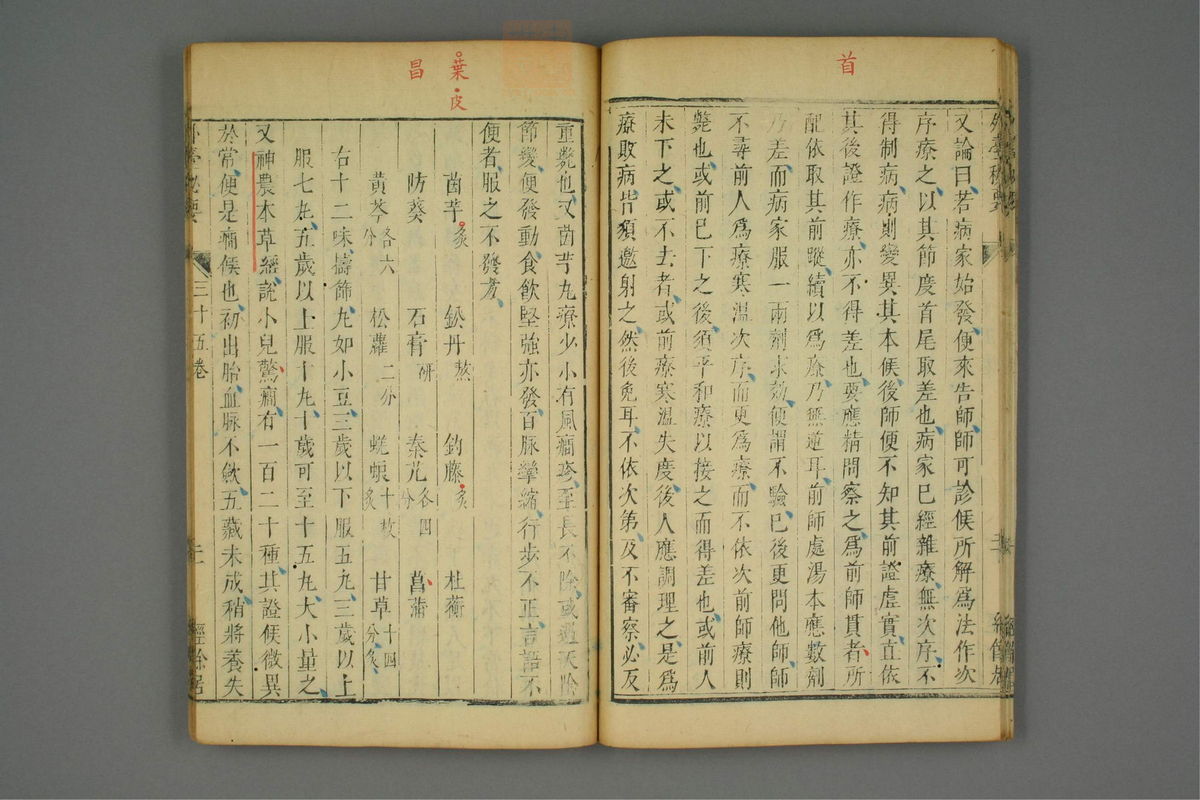 首
又論曰若病家始發便來告師師可診候所解為法作次
序療之以其節度首尾取差也病家巳經雜療無次序不
得制病病則變異其本候後師便不知其前證虛實直依
其後證作療亦不得差也要應精問察之為前師貫者所
配依取其前蹤續以為療乃無逆耳前師處湯本應數劑
乃差而病家服一兩劑未效便謂不驗巳後更問他師師
不尋前人為療寒溫次序而更為療而不依次前師療則
斃也或前巳下之後須平和療以接之而得差也或前人
未下之或不去者或前療寒溫失度後人應調理之是為
療敗病皆須邀射之然後免耳不依次第及不審察必及
葉皮
昌
重斃也又茵芋丸療少小有風癇疹至長不除或遇天陰
節變便發動食飲堅強亦發百脉攣縮行步不正言語不
便者服之不發方
茵芋炙 鈆丹熬 鈎藤炙 杜蘅
防葵 石膏研 秦艽各四分 菖蒲
黃芩各六分 松蘿二分 蜣蜋十枚炙 甘草十四分炙
右十二味擣篩丸如小豆三歲以下服五丸三歲以上
服七丸五歲以上服十丸十歲可至十五丸大小量之
又神農本草經說小兒驚癇有一百二十種其證候微異
於常便是癇候也初出胎血脉不斂五藏未成稍將養失
外臺秘要 三十五卷 二 經餘居